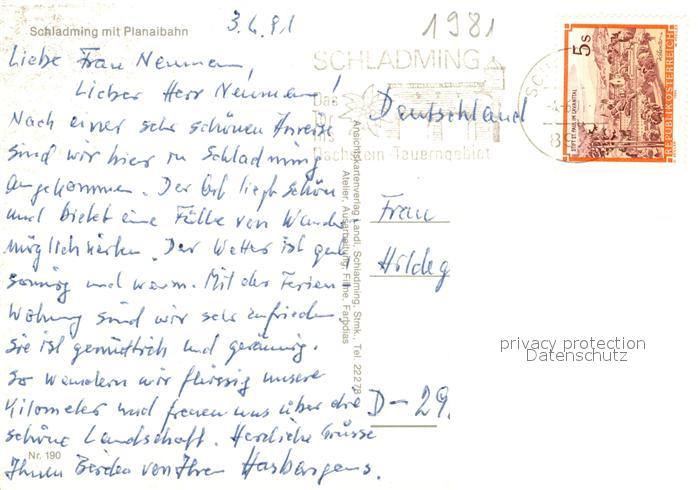 Schladming mit Planaibahn
3.6.91
1981
Liebe Frau Neumann,
Lieber Herr Neumann!
Nach einer sehr schönen Anreise
sind wir hier in Schladming
angekommen. Der Ort liegt schön
und bietet eine Fülle von Wander
möglichkeiten. Der Wetter ist gut,
sonnig und warm. Mit der Ferien
wohnung sind wir sehr zufrieden
sie ist gemütlich und geräumig.
So wandern wir fleissig unsere
Kilometer und freuen uns über die
schöne Landschaft. Herzliche Grüsse
Ihnen Beiden von Ihren Hasbargens.
Nr. 190
Ansichtskartenverlag Landl, Schladming, Stmk., Tel. 22 2 78
Atelier, Ausarbeitung, Filme, Farbdias
SCHLADMING
Das
Tor
ins
Dachstein-Tauerngebiet
5 S
STIFT ST. PAUL IM LAVANTTAL
REPUBLIK ÖSTERREICH
Deutschland
Frau
Hildeg
D-29
privacy protection
Datenschutz